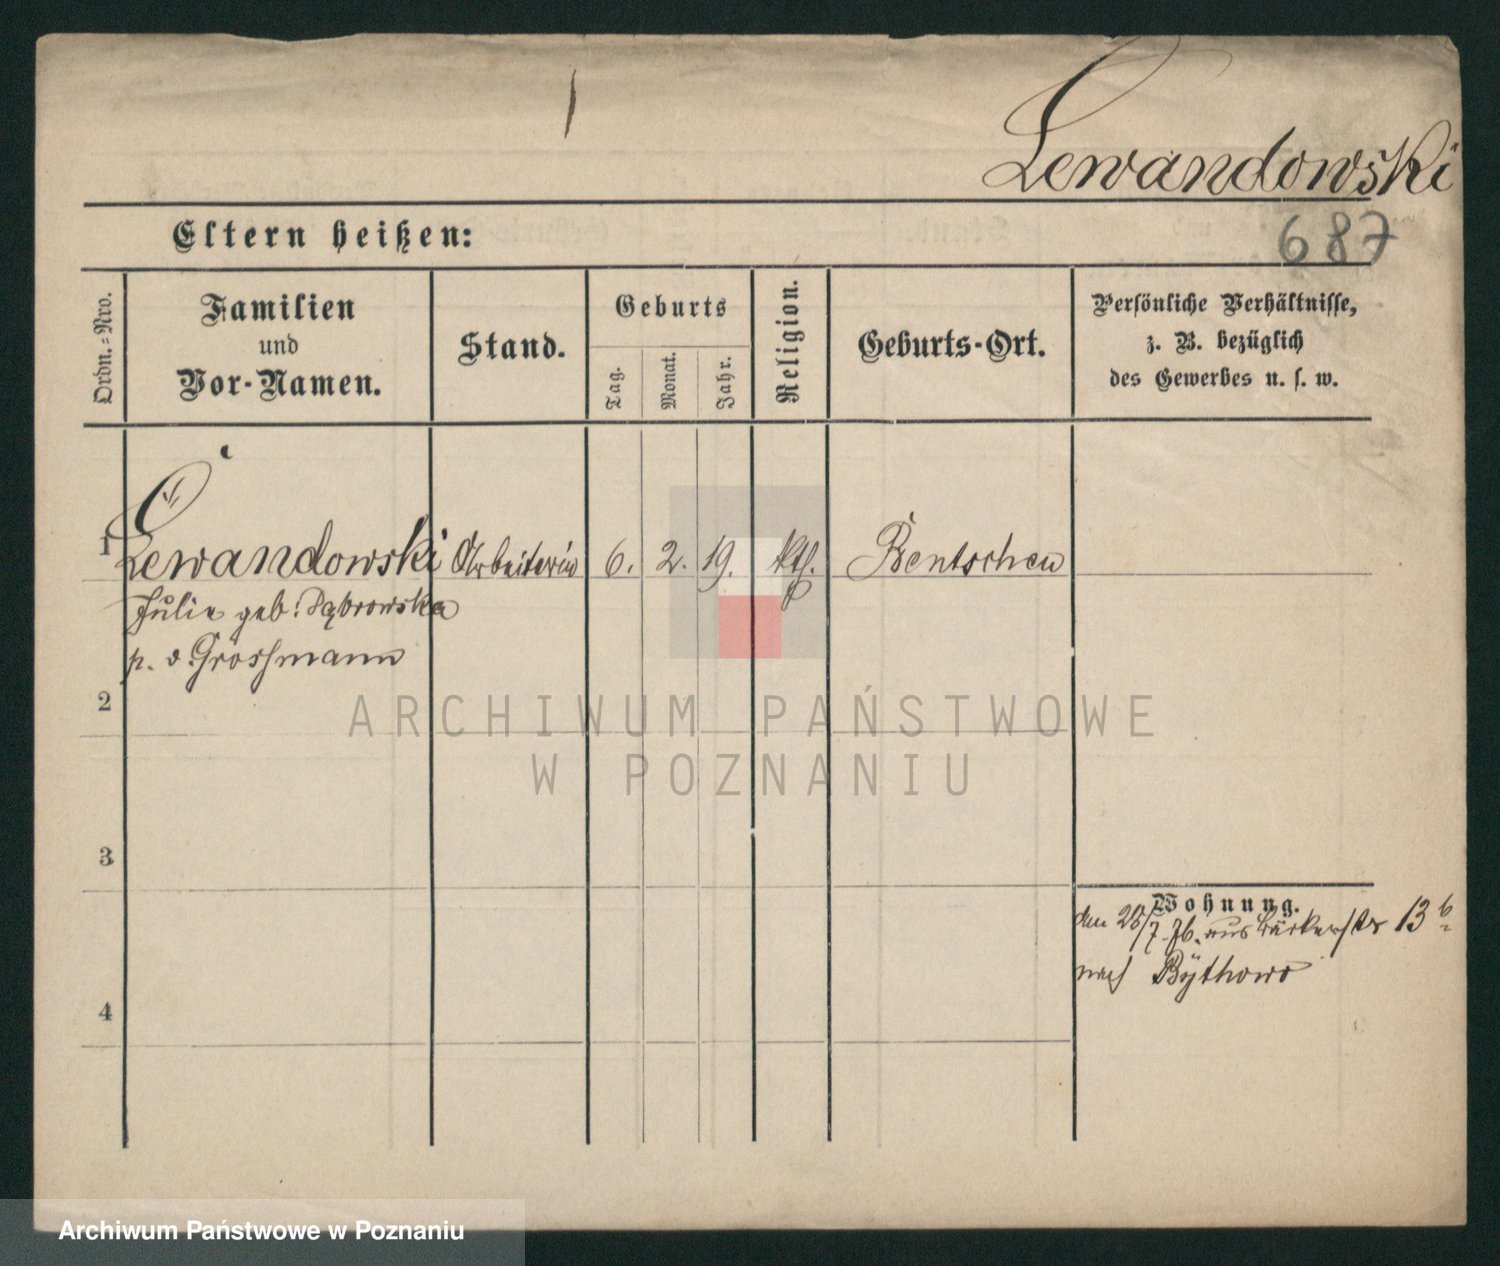 Lewandowski
687
Eltern heißen:
Ordn.-Nro.
Familien
und
Vor-Namen.
Stand.
Geburts
Tag.
Monat.
Jahr.
Religion.
Geburts-Ort.
Persönliche Verhältnisse,
z. B. bezüglich
des Gewerbes u. s. w.
1
Lewandowski Arbeiterin 6. 2. 19. kth. Bentschen
Julie geb. Dąbrowska
p. v. Grossmann
2
3
4
Wohnung.
den 28/7. 76. aus Bäckerstr 13 b
nach Bythowo
ARCHIWUM PAŃSTWOWE
W POZNANIU
Archiwum Państwowe w Poznaniu